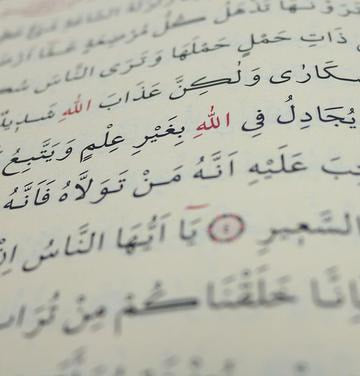 تَرَوْنَهَا تَذْهَلُ كُلُّ مُرْضِعَةٍ عَمَّا
ذَاتِ حَمْلٍ حَمْلَهَا وَتَرَى النَّاسَ
سُكَارٰى وَلٰكِنَّ عَذَابَ اللّٰهِ شَدٖيدٌ
يُجَادِلُ فِى اللّٰهِ بِغَيْرِ عِلْمٍ وَيَتَّبِعُ
عَلَيْهِ اَنَّهُ مَنْ تَوَلَّاهُ فَاَنَّهُ
السَّعٖيرِ ٤ يَٓا اَيُّهَا النَّاسُ اِنْ
فَاِنَّا خَلَقْنَاكُمْ مِنْ تُرَابٍ